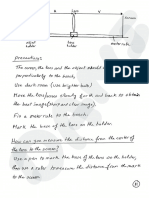 u
Lens
v
Screen
object
holder
lens
holder
meter rule
Precautions:
The screen, the lens and the object should be
perpendicularly to the bench.
Use dark room (use brighter bulb)
Move the lens/screen slowly forth and back to obtain the
best image (sharp and clear image).
Fix a meter rule to the bench.
Mark the base of lens on the holder.
How can you measure the distance from the center of
the lens to the screen?
Use a pen to mark the base of the lens on the holder,
then use a ruler to measure the distance from the mark
to the screen.